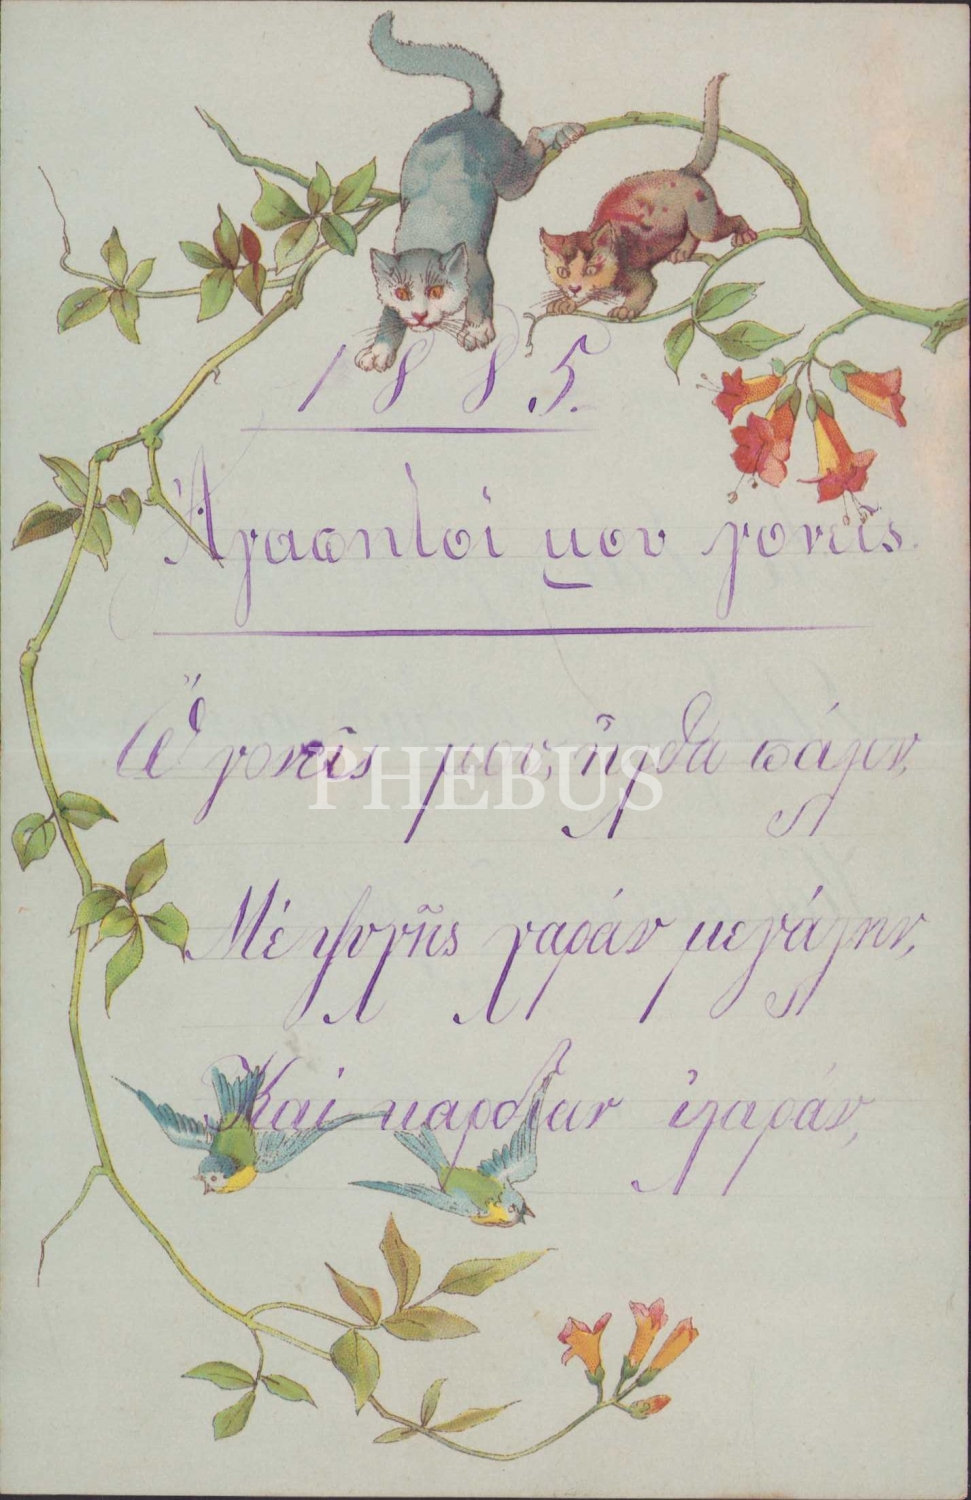 1885.
Ἀγαπητοί μου γονεῖς.
Ὦ γονεῖς μου, ἦλθα πάλιν,
PHEBUS
Μέ ψυχῆς χαράν μεγάλην,
Καί καρδίαν ἱλαράν,